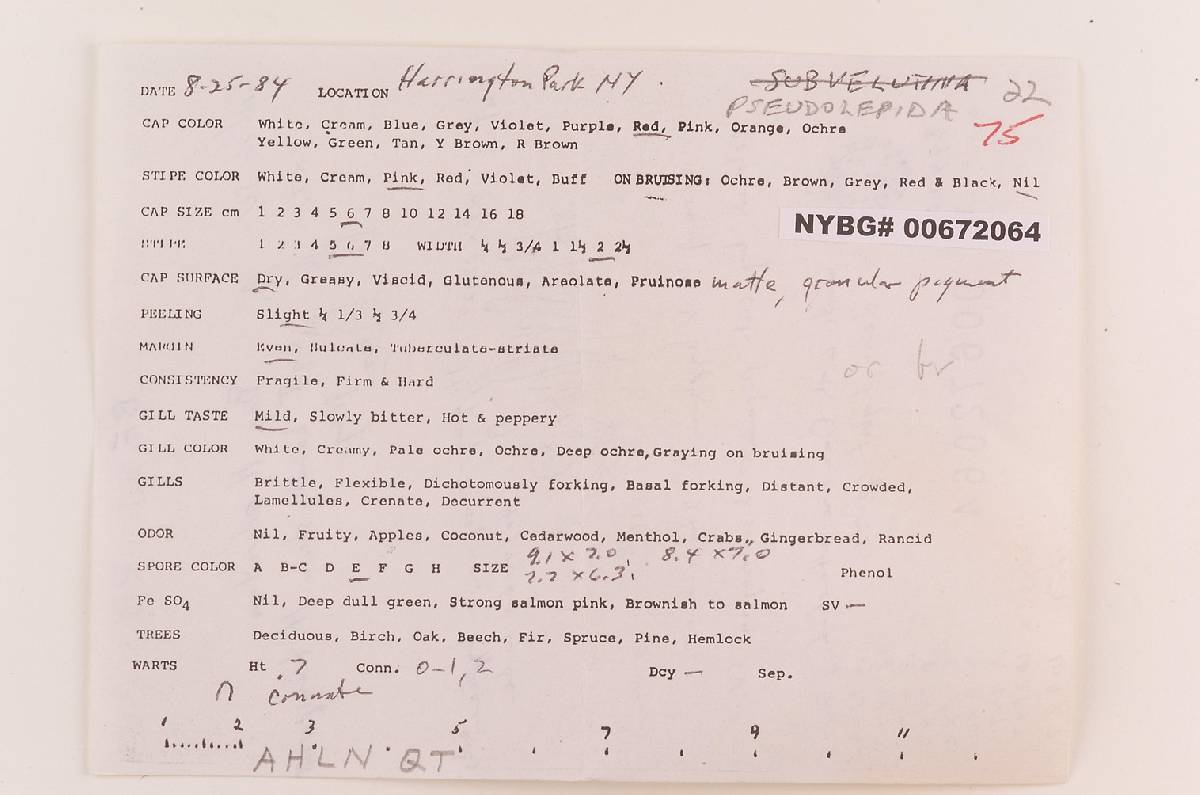 DATE 8-25-84 LOCATION Harrington Park NY . SUBVELUTINA 22
PSEUDOLEPIDA
CAP COLOR White, Cream, Blue, Grey, Violet, Purple, Red, Pink, Orange, Ochre 75
Yellow, Green, Tan, Y Brown, R Brown
STIPE COLOR White, Cream, Pink, Red, Violet, Buff ON BRUISING: Ochre, Brown, Grey, Red & Black, Nil
CAP SIZE cm 1 2 3 4 5 6 7 8 10 12 14 16 18
NYBG# 00672064
STIPE 1 2 3 4 5 6 7 8 WIDTH ¼ ½ 3/4 1 1½ 2 2½
CAP SURFACE Dry, Greasy, Viscid, Glutenous, Areolate, Pruinose matte, granular pigment
PEELING Slight ¼ 1/3 ½ 3/4
MARGIN Even, Sulcate, Tuberculate-striate
or br
CONSISTENCY Fragile, Firm & Hard
GILL TASTE Mild, Slowly bitter, Hot & peppery
GILL COLOR White, Creamy, Pale ochre, Ochre, Deep ochre, Graying on bruising
GILLS Brittle, Flexible, Dichotomously forking, Basal forking, Distant, Crowded,
Lamellules, Crenate, Decurrent
ODOR Nil, Fruity, Apples, Coconut, Cedarwood, Menthol, Crabs., Gingerbread, Rancid
9.1 x 7.0, 8.4 x 7.0
SPORE COLOR A B-C D E F G H SIZE 7.7 x 6.3, Phenol
Fe SO4 Nil, Deep dull green, Strong salmon pink, Brownish to salmon SV —
TREES Deciduous, Birch, Oak, Beech, Fir, Spruce, Pine, Hemlock
WARTS Ht .7 Conn. 0-1,2 Dcy — Sep.
∩ connate
1 2 3 5 7 9 11
AHLN QT